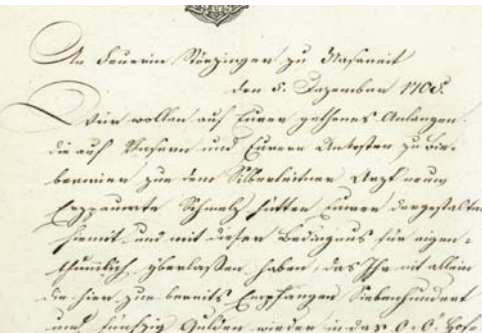 An Severin Störzinger zu Nassereit
den 5. Dezember 1705.
Wür wollen auf Euren gethones Anlangen
die auf Unsern und Eurern Untosten zu Bie-
berwier zue dem Silberleitner Arzt neuw
Erppaurte Schmelz hütten Eurer dergestalten
hiemit und mit disen Bedingnus für eigen-
thumblich yberlaßen haben, das Ihr nit allein
die hier zue bereits Empfangen Siebenhundert
und fünfzig Gulden wieder in das O. Ö. Hof-